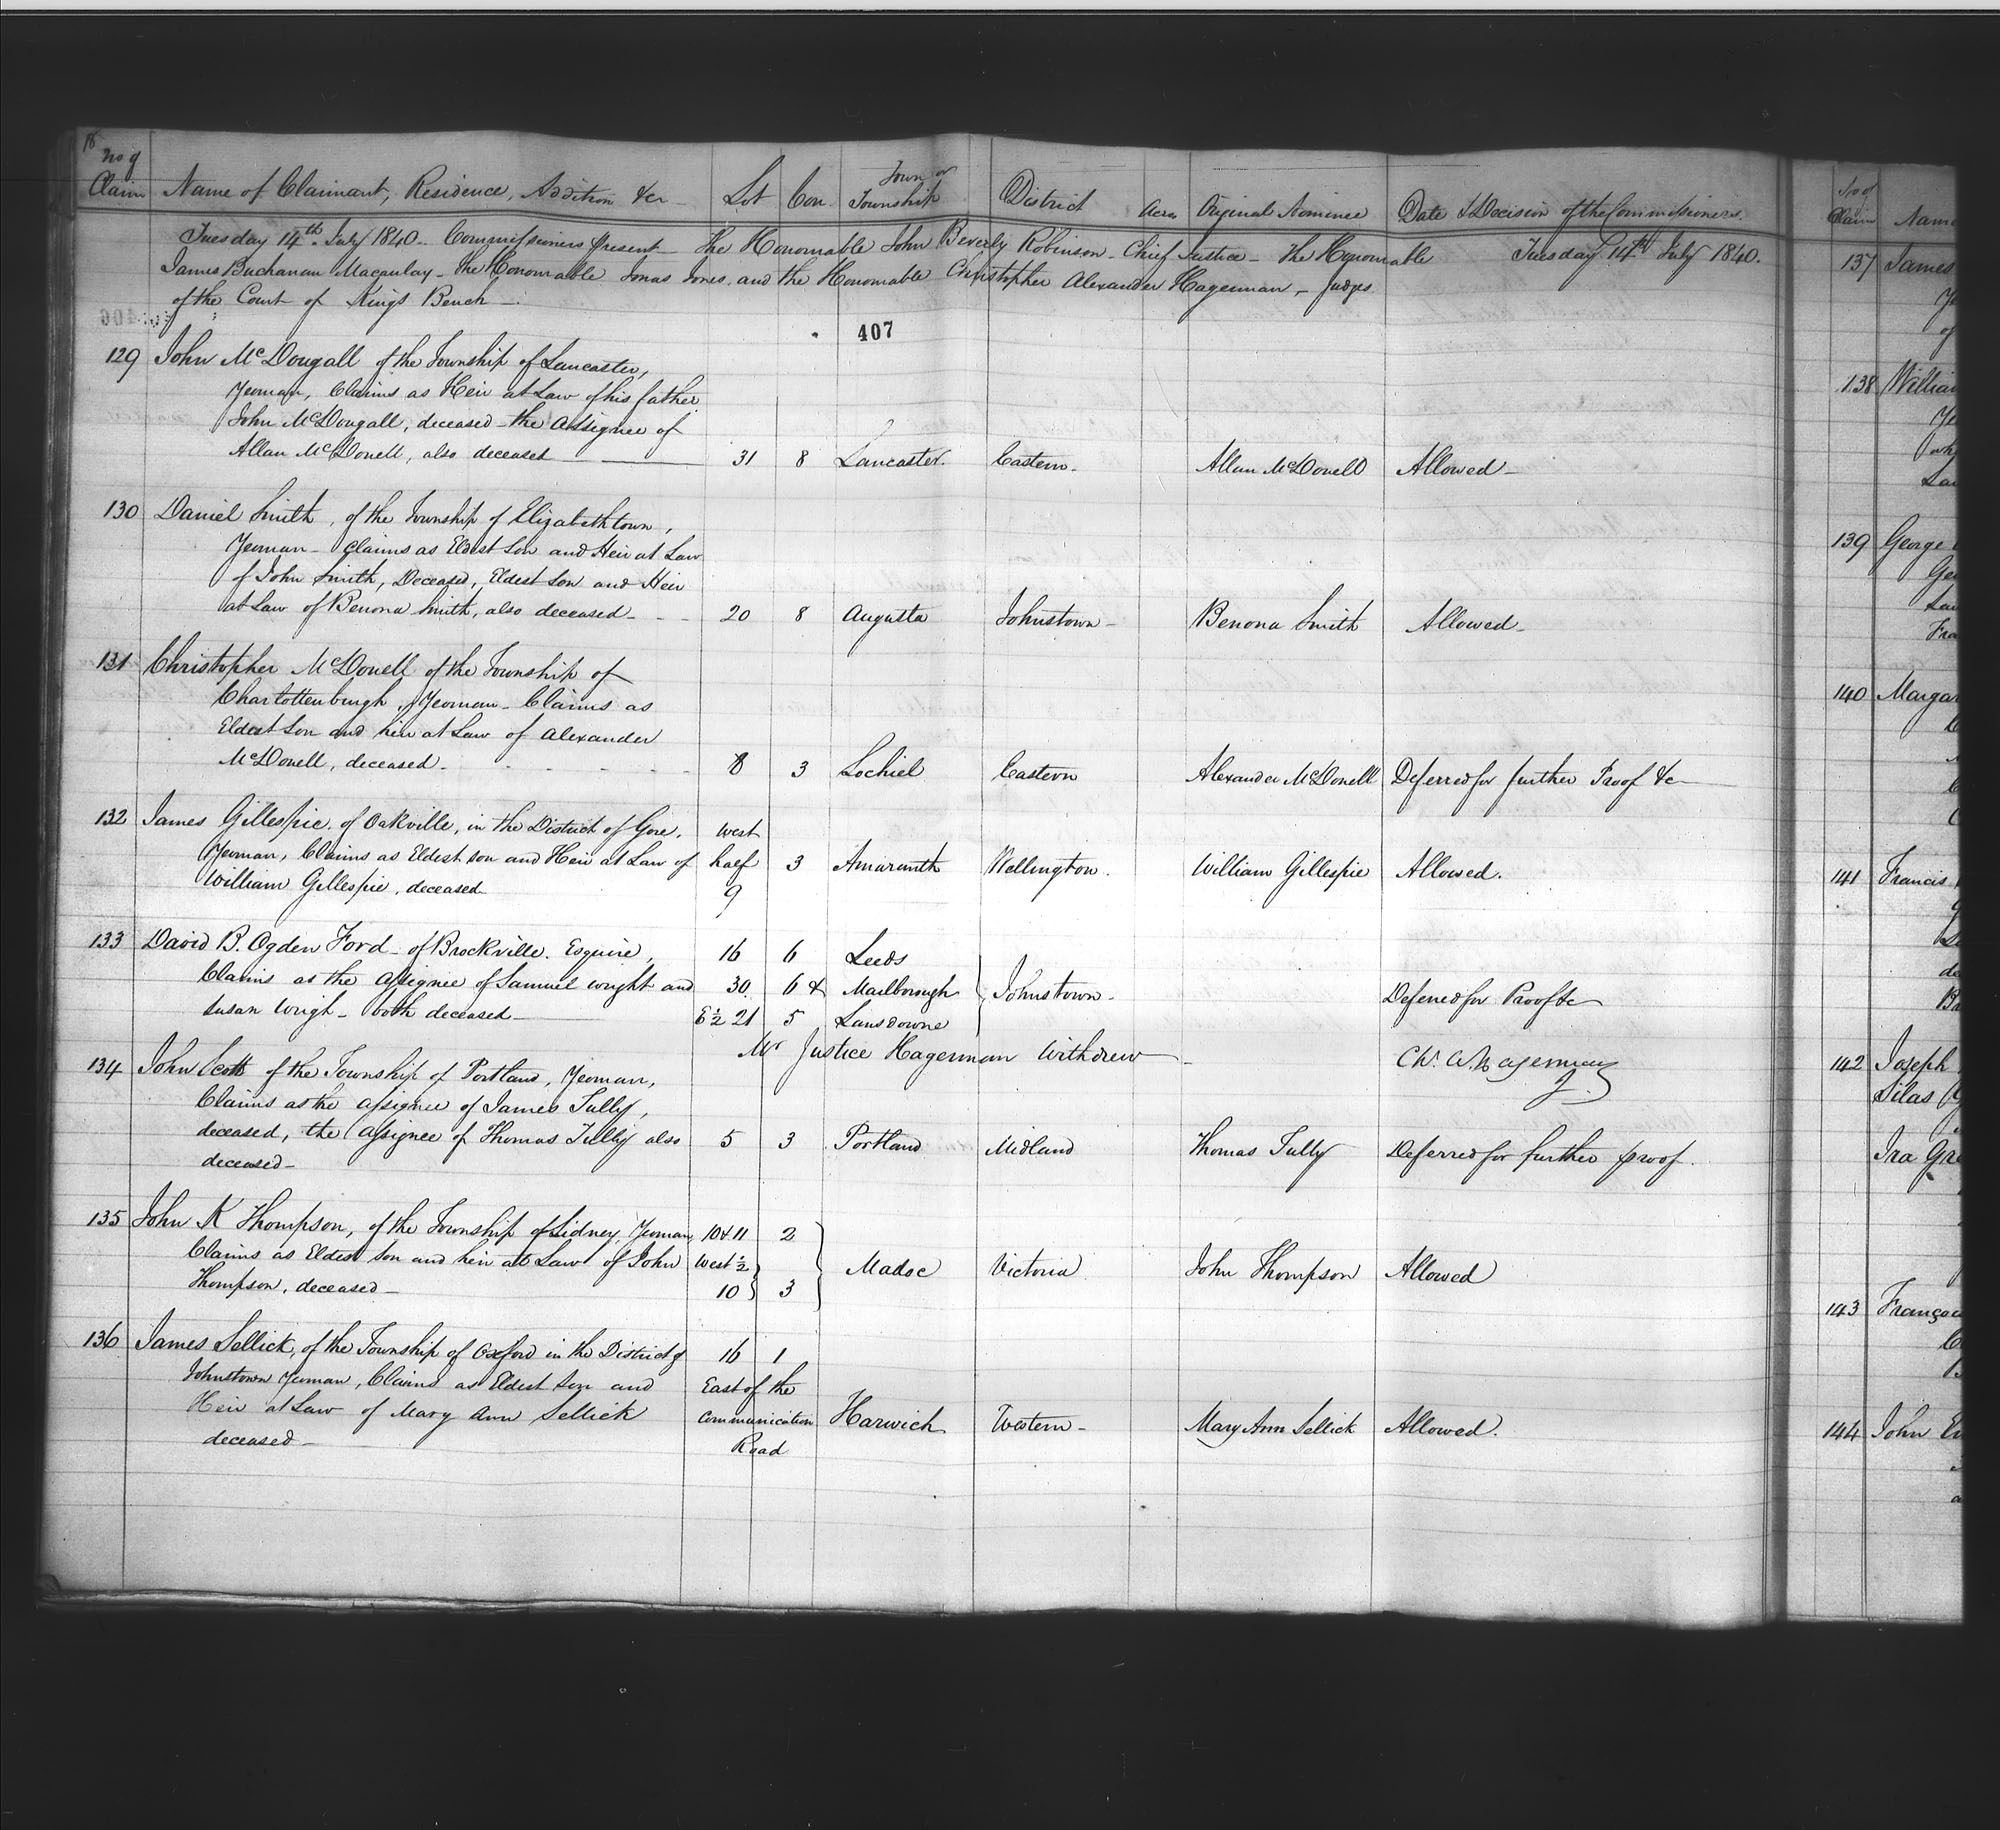 16
No of
Claim Name of Claimant, Residence, Addition &c Lot Con Town or Township District Acres Original Nominee Date & Decision of the Commissioners
Tuesday 14th July 1840. Commissioners present - The Honourable John Beverly Robinson - Chief Justice - The Honourable Tuesday 14th July 1840.
James Buchanan Macaulay - the Honourable Jonas Jones, and the Honourable Christopher Alexander Hagerman - Judges
of the Court of Kings Bench -
407
129 John McDougall of the Township of Lancaster,
Yeoman, Claims as Heir at Law of his father
John McDougall, deceased - the Assignee of
Allan McDonell, also deceased 31 8 Lancaster. Eastern - Allan McDonell Allowed -
130 Daniel Smith, of the Township of Elizabethtown,
Yeoman - Claims as Eldest Son and Heir at Law
of John Smith, Deceased, Eldest Son and Heir
at Law of Benona Smith, also deceased - - - 20 8 Augusta Johnstown - Benona Smith Allowed -
131 Christopher McDonell of the Township of
Charlottenburgh, Yeoman - Claims as
Eldest Son and heir at Law of Alexander
McDonell, deceased - - - - - - 8 3 Lochiel Eastern Alexander McDonell Deferred for further Proof &c
132 James Gillespie of Oakville, in the District of Gore, West
Yeoman, Claims as Eldest son and Heir at Law of half 3 Amaranth Wellington. William Gillespie Allowed.
William Gillespie, deceased 9
133 David B. Ogden Ford - of Brockville. Esquire, 16 6 Leeds
Claims as the assignee of Samuel Wright and 30 6 & Marlborough Johnstown - Deferred for Proof &c
Susan Wrigh - both deceased E ½ 21 5 Lansdowne
Mr Justice Hagerman withdrew - Chr. A. Hagerman J.
134 John Scott of the Township of Portland, Yeoman,
Claims as the assignee of James Tully,
deceased, the assignee of Thomas Tully also 5 3 Portland Midland Thomas Tully Deferred for further proof.
deceased -
135 John K Thompson, of the Township of Sidney, Yeoman, 10 & 11 2
Claims as Eldest son and heir at Law of John West ½ Madoc Victoria John Thompson Allowed
Thompson, deceased - 10 3
136 James Sellick, of the Township of Oxford in the District of 16 1
Johnstown Yeoman, Claims as Eldest Son and East of the
Heir at Law of Mary Ann Sellick Communication Harwich Western - Mary Ann Sellick Allowed.
deceased - Road
No of
Claim Name
137 James
138 William
139 George
140 Margar
141 Francis
142 Joseph
Silas
Ira Gre
143 François
144 John